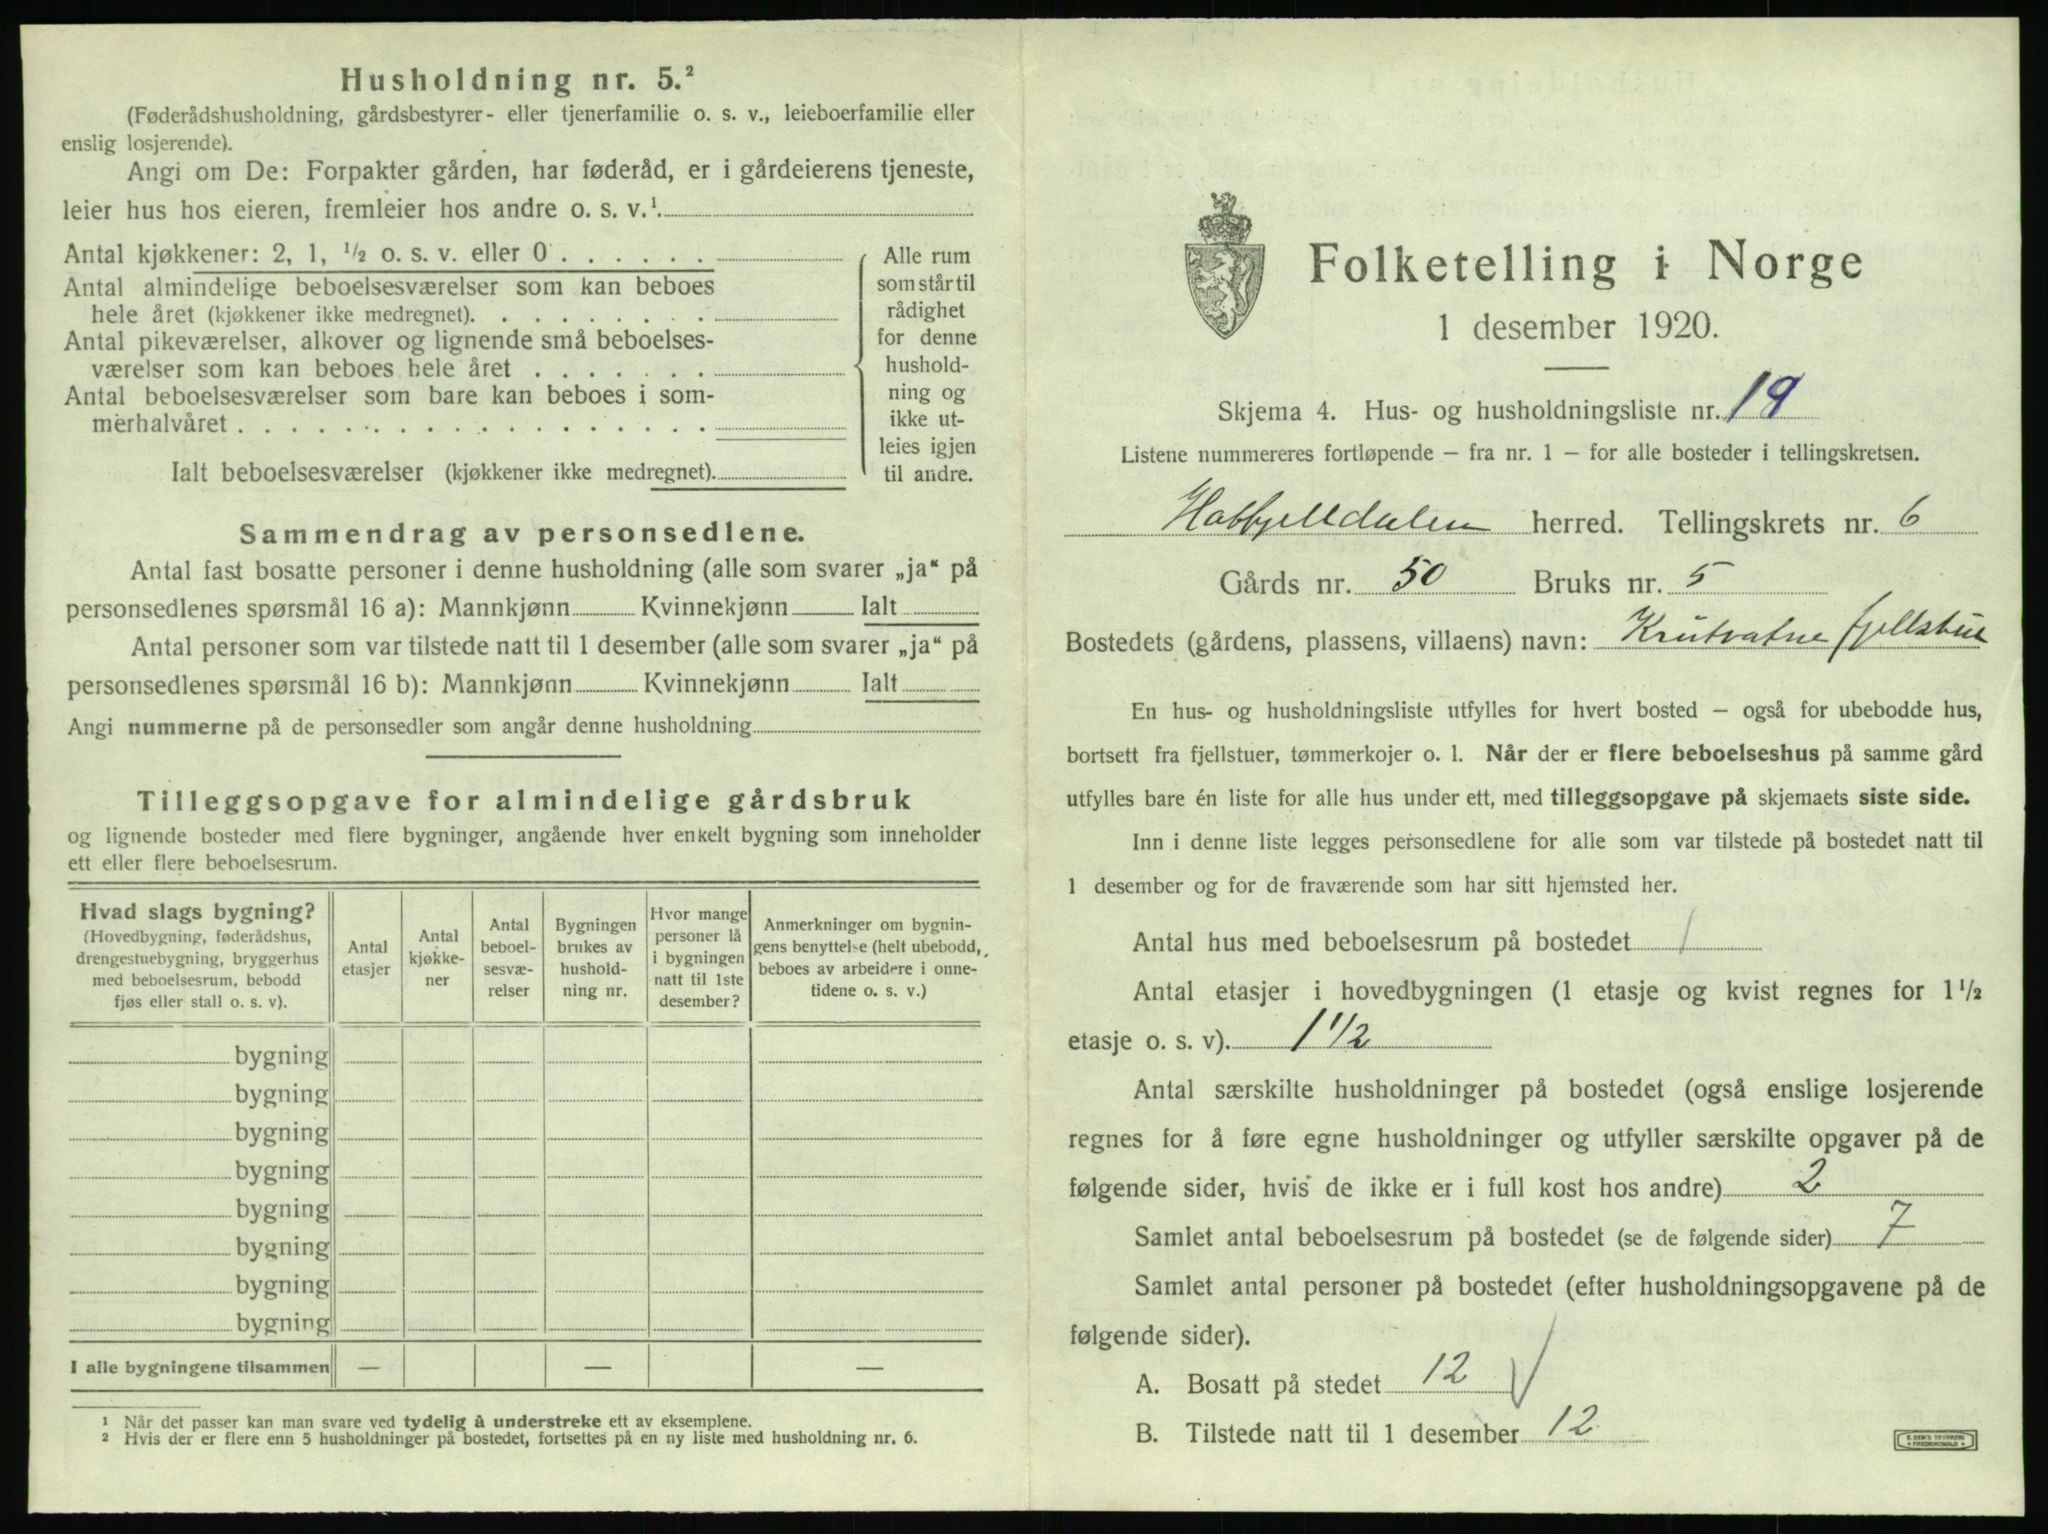 Husholdning nr. 5.²
(Føderådshusholdning, gårdsbestyrer- eller tjenerfamilie o. s. v., leieboerfamilie eller
enslig losjerende).
Angi om De: Forpakter gården, har føderåd, er i gårdeierens tjeneste,
leier hus hos eieren, fremleier hos andre o. s. v.¹
Antal kjøkkener: 2, 1, ½ o. s. v. eller 0 . . . . . .
Antal almindelige beboelsesværelser som kan beboes
hele året (kjøkkener ikke medregnet). . . . . . . . .
Antal pikeværelser, alkover og lignende små beboelses-
værelser som kan beboes hele året . . . . . . .
Antal beboelsesværelser som bare kan beboes i som-
merhalvåret . . . . . . . . . . . . . . . . . .
Ialt beboelsesværelser (kjøkkener ikke medregnet)
Alle rum
som står til
rådighet
for denne
hushold-
ning og
ikke ut-
leies igjen
til andre.
Sammendrag av personsedlene.
Antal fast bosatte personer i denne husholdning (alle som svarer „ja“ på
personsedlenes spørsmål 16 a): Mannkjønn Kvinnekjønn Ialt
Antal personer som var tilstede natt til 1 desember (alle som svarer „ja“ på
personsedlenes spørsmål 16 b): Mannkjønn Kvinnekjønn Ialt
Angi nummerne på de personsedler som angår denne husholdning
Tilleggsopgave for almindelige gårdsbruk
og lignende bosteder med flere bygninger, angående hver enkelt bygning som inneholder
ett eller flere beboelsesrum.
Hvad slags bygning?
(Hovedbygning, føderådshus,
drengestuebygning, bryggerhus
med beboelsesrum, bebodd
fjøs eller stall o. s. v).
Antal
etasjer
Antal
kjøkke-
ner
Antal
beboel-
sesvæ-
relser
Bygningen
brukes av
hushold-
ning nr.
Hvor mange
personer lå
i bygningen
natt til 1ste
desember?
Anmerkninger om bygnin-
gens benyttelse (helt ubebodd,
beboes av arbeidere i onne-
tidene o. s. v.)
bygning
bygning
bygning
bygning
bygning
bygning
bygning
bygning
I alle bygningene tilsammen — — —
¹ Når det passer kan man svare ved tydelig å understreke ett av eksemplene.
² Hvis der er flere enn 5 husholdninger på bostedet, fortsettes på en ny liste med husholdning nr. 6.
Folketelling i Norge
1 desember 1920.
Skjema 4. Hus- og husholdningsliste nr. 19
Listene nummereres fortløpende – fra nr. 1 – for alle bosteder i tellingskretsen.
Hatbjelldalen herred. Tellingskrets nr. 6
Gårds nr. 50 Bruks nr. 5
Bostedets (gårdens, plassens, villaens) navn: Krutvatne fjellstue
En hus- og husholdningsliste utfylles for hvert bosted – også for ubebodde hus,
bortsett fra fjellstuer, tømmerkojer o. l. Når der er flere beboelseshus på samme gård
utfylles bare én liste for alle hus under ett, med tilleggsopgave på skjemaets siste side.
Inn i denne liste legges personsedlene for alle som var tilstede på bostedet natt til
1 desember og for de fraværende som har sitt hjemsted her.
Antal hus med beboelsesrum på bostedet 1
Antal etasjer i hovedbygningen (1 etasje og kvist regnes for 1½
etasje o. s. v). 1 1/2
Antal særskilte husholdninger på bostedet (også enslige losjerende
regnes for å føre egne husholdninger og utfyller særskilte opgaver på de
følgende sider, hvis de ikke er i full kost hos andre) 2
Samlet antal beboelsesrum på bostedet (se de følgende sider) 7
Samlet antal personer på bostedet (efter husholdningsopgavene på de
følgende sider).
A. Bosatt på stedet 12 √
B. Tilstede natt til 1 desember 12